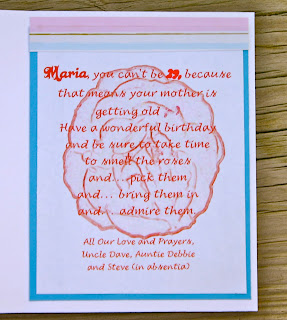 Maria, you can't be 29, because
that means your mother is
getting old . . .
Have a wonderful birthday
and be sure to take time
to smell the roses
and.... pick them
and... bring them in
and.... admire them.
All Our Love and Prayers,
Uncle Dave, Auntie Debbie
and Steve (in absentia)